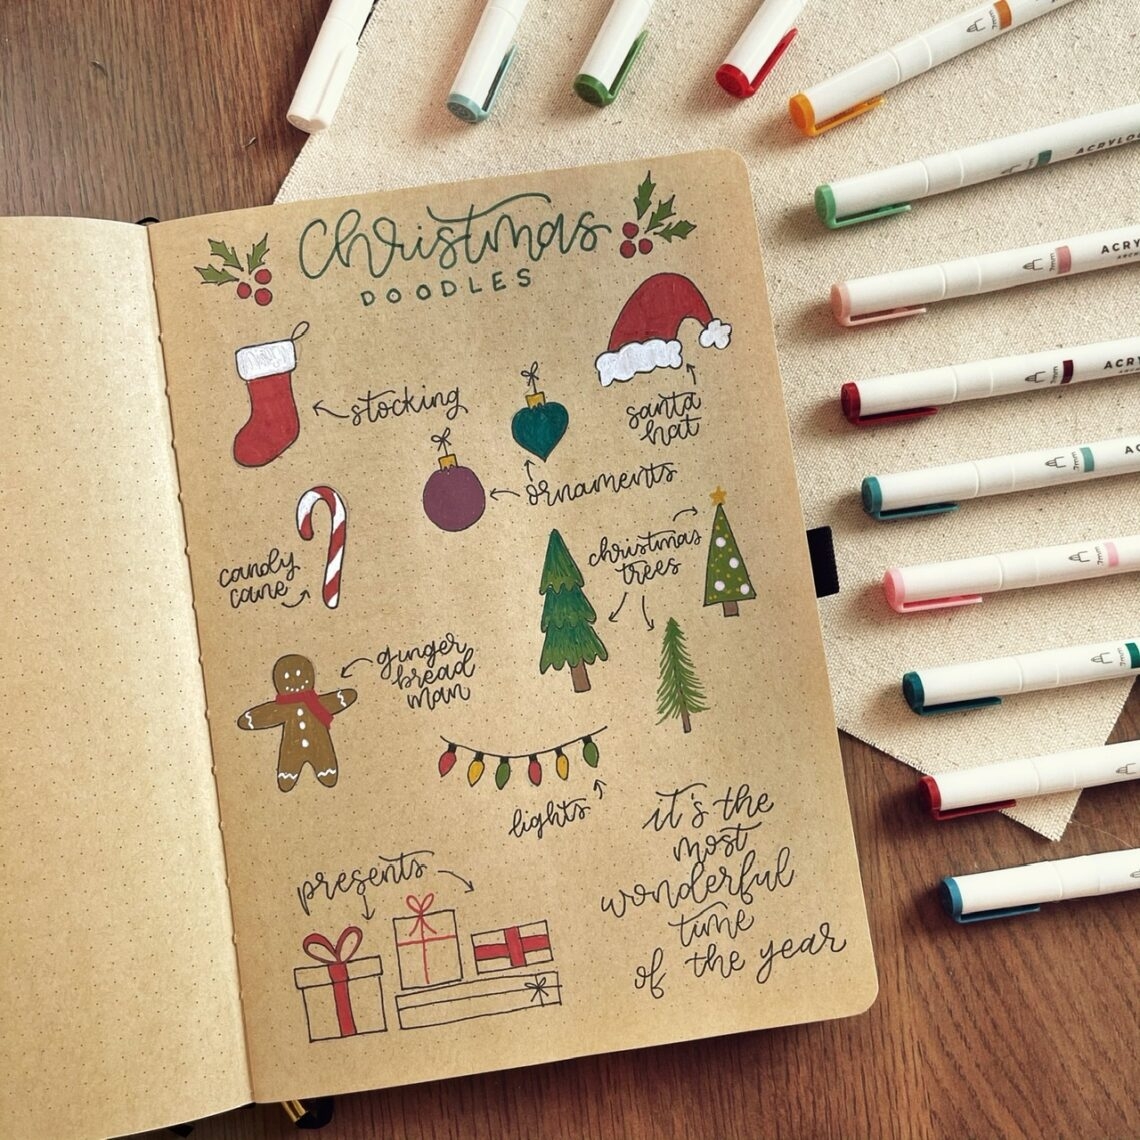 Christmas
DOODLES
stocking
santa
hat
ornaments
candy
cane
christmas
trees
ginger
bread
man
lights
presents
it's the
most
wonderful
time
of the year
ACRYLO
.7mm
ACRY
.7mm
ACRY
.7mm
AC
.7mm
.7mm